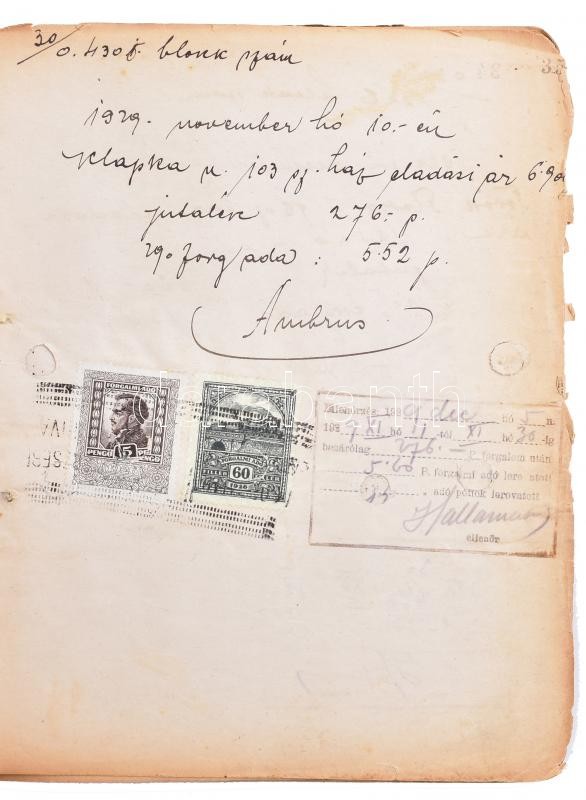 30/0.430 blokk szám
35
1929. november hó 10.-én
Klapka u. 103 sz. ház eladási ár 6.90
jutalék 276.- p.
2% forg/adó : 5.52 p.
Ambrus
FORGALMI ADÓ
5
PENGŐ
FORGALMI ADÓ
60
FILLÉR
1926
Ellenőrzés: 1929 dec hó 5-n.
1929 XI hó 11-től XI hó 20-ig
bezárólag 276.- P. forgalom után
5.60 P. forgalmi adó lero atott
" adó pótlék lerovatott
ellenőr
darabanth